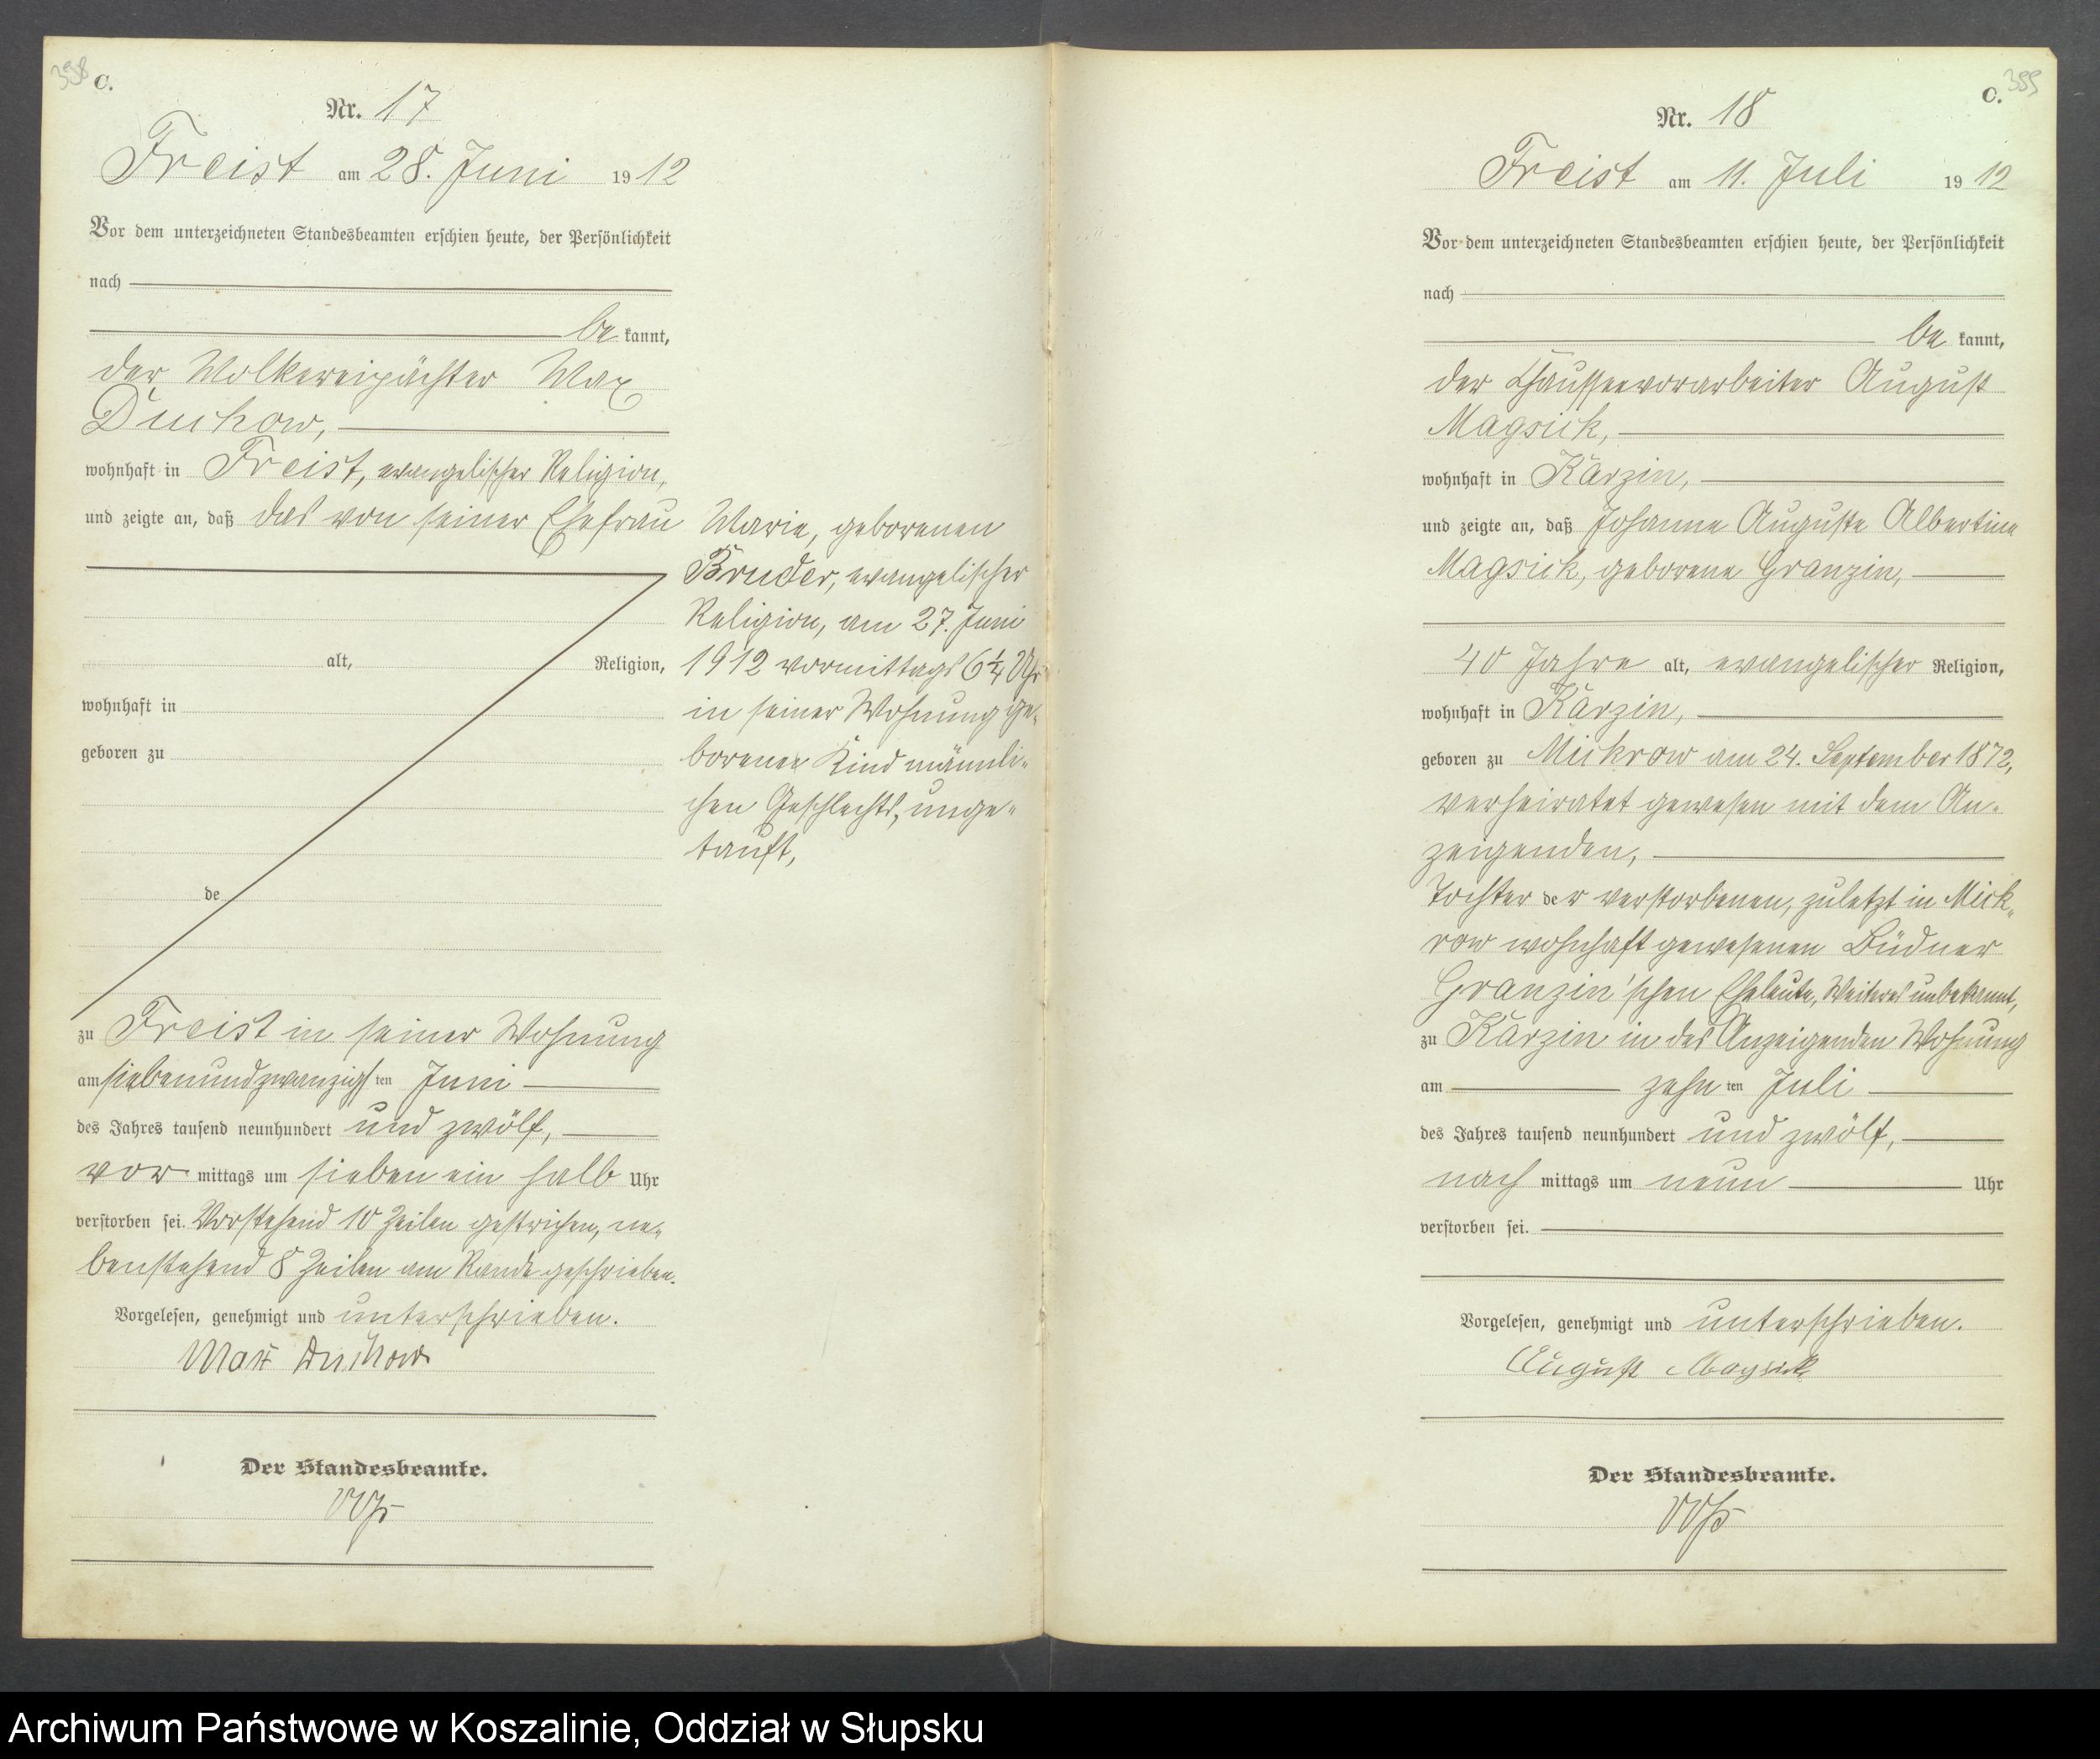 398 C.
Nr. 17
Freist am 28. Juni 1912
Vor dem unterzeichneten Standesbeamten erschien heute, der Persönlichkeit
nach
be kannt,
der Molkereipächter Max
Duchow,
wohnhaft in Freist, evangelischer Religion,
und zeigte an, daß das von seiner Ehefrau Marie, geborenen
Bruder, evangelischer
Religion, am 27. Juni
alt, Religion, 1912 vormittags 6 1/4 Uhr
wohnhaft in in seiner Wohnung ge-
geboren zu borenen Kind männli-
chen Geschlechts, unge-
tauft,
de
zu Freist in seiner Wohnung
am siebenundzwanzigsten Juni
des Jahres tausend neunhundert und zwölf,
vor mittags um sieben ein halb Uhr
verstorben sei. Vorstehend 10 Zeilen gestrichen, ne-
benstehend 8 Zeilen am Rande geschrieben.
Vorgelesen, genehmigt und unterschrieben.
Max Duchow
Der Standesbeamte.
C. 399
Nr. 18
Freist am 11. Juli 1912
Vor dem unterzeichneten Standesbeamten erschien heute, der Persönlichkeit
nach
be kannt,
der Chausseevorarbeiter August
Magsick,
wohnhaft in Karzin,
und zeigte an, daß Johanne Auguste Albertine
Magsick, geborene Granzin,
40 Jahre alt, evangelischer Religion,
wohnhaft in Karzin,
geboren zu Mickrow am 24. September 1872,
verheiratet gewesen mit dem An-
zeigenden,
Tochter der verstorbenen, zuletzt in Mick-
row wohnhaft gewesenen Büdner
Granzin'schen Eheleute, Weiteres unbekannt,
zu Karzin in des Anzeigenden Wohnung
am zehn ten Juli
des Jahres tausend neunhundert und zwölf,
nach mittags um neun Uhr
verstorben sei.
Vorgelesen, genehmigt und unterschrieben.
August Magsick
Der Standesbeamte.
Archiwum Państwowe w Koszalinie, Oddział w Słupsku